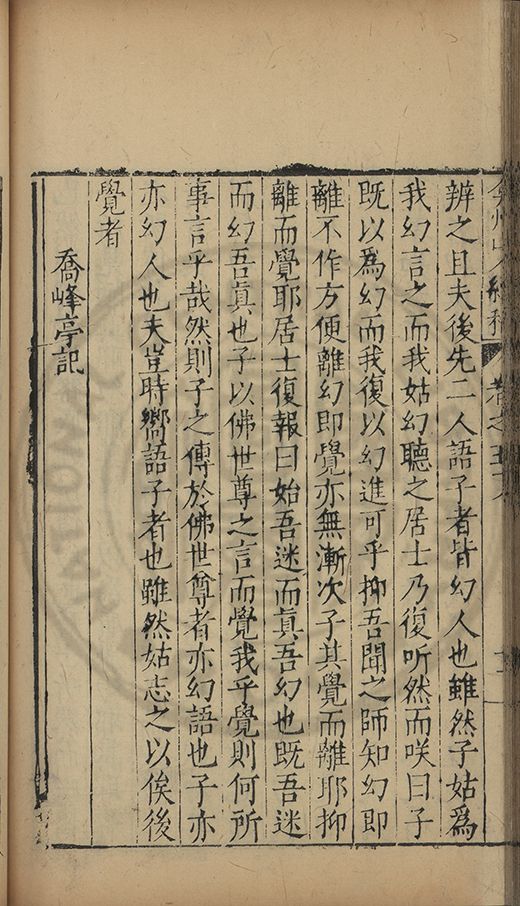 弇州山人續稿 卷之五十八
辨之且夫後先二人語子者皆幻人也雖然子姑為
我幻言之而我姑幻聽之居士乃復听然而咲曰子
既以爲幻而我復以幻進可乎抑吾聞之師知幻即
離不作方便離幻即覺亦無漸次子其覺而離耶抑
離而覺耶居士復報曰始吾迷而眞吾幻也既吾迷
而幻吾眞也子以佛世尊之言而覺我乎覺則何所
事言乎哉然則子之傳於佛世尊者亦幻語也子亦
亦幻人也夫豈時嚮語子者也雖然姑志之以俟後
覺者
喬峰亭記